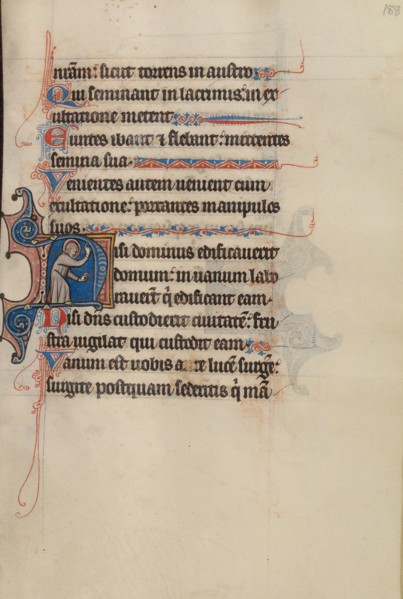 188
nr̄am: sicut torrens in austro.
Qui seminant in lacrimis: in ex
ultatione metent.
Euntes ibant ⁊ flebant: mittentes
semina sua.
Venientes autem uenient cum
exultatione: portantes manipulos
suos.
Nisi dominus edificauerit
domum: in uanum labo
rauerūt q̄ edificant eam.
Nisi dn̄s custodierit ciuitatē: fru
stra uigilat qui custodit eam.
Vanum est uobis a re lucē surgē:
surgite postquam sederitis q̄ mā